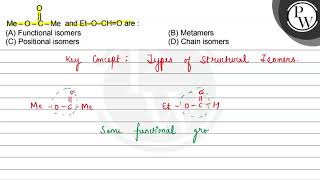 O
Me – O – C – Me and Et–O–CH=O are :
(A) Functional isomers (B) Metamers
(C) Positional isomers (D) Chain isomers
Key Concept : Types of Structural Isomers.
O O
Me – O – C – Me Et – O – C – H
Same functional gro